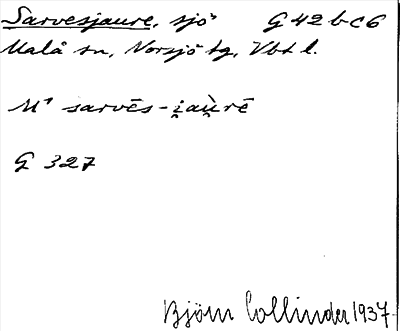 Sarvesjaure, sjö G 42 b c 6
Malå sn, Norsjö tg, Vbt l.
M¹ sarvēs-i̯au̯rē
G 327
Björn Collinder 1937